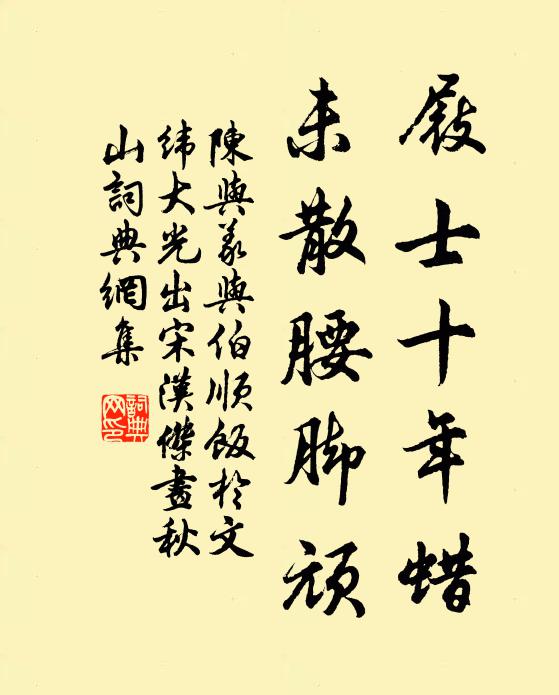 屐士十年蜡
未散腰脚頑
陳與義與伯順飯於文
緯大光出宋漢傑畫秋
山詞典網集
詞典
网印